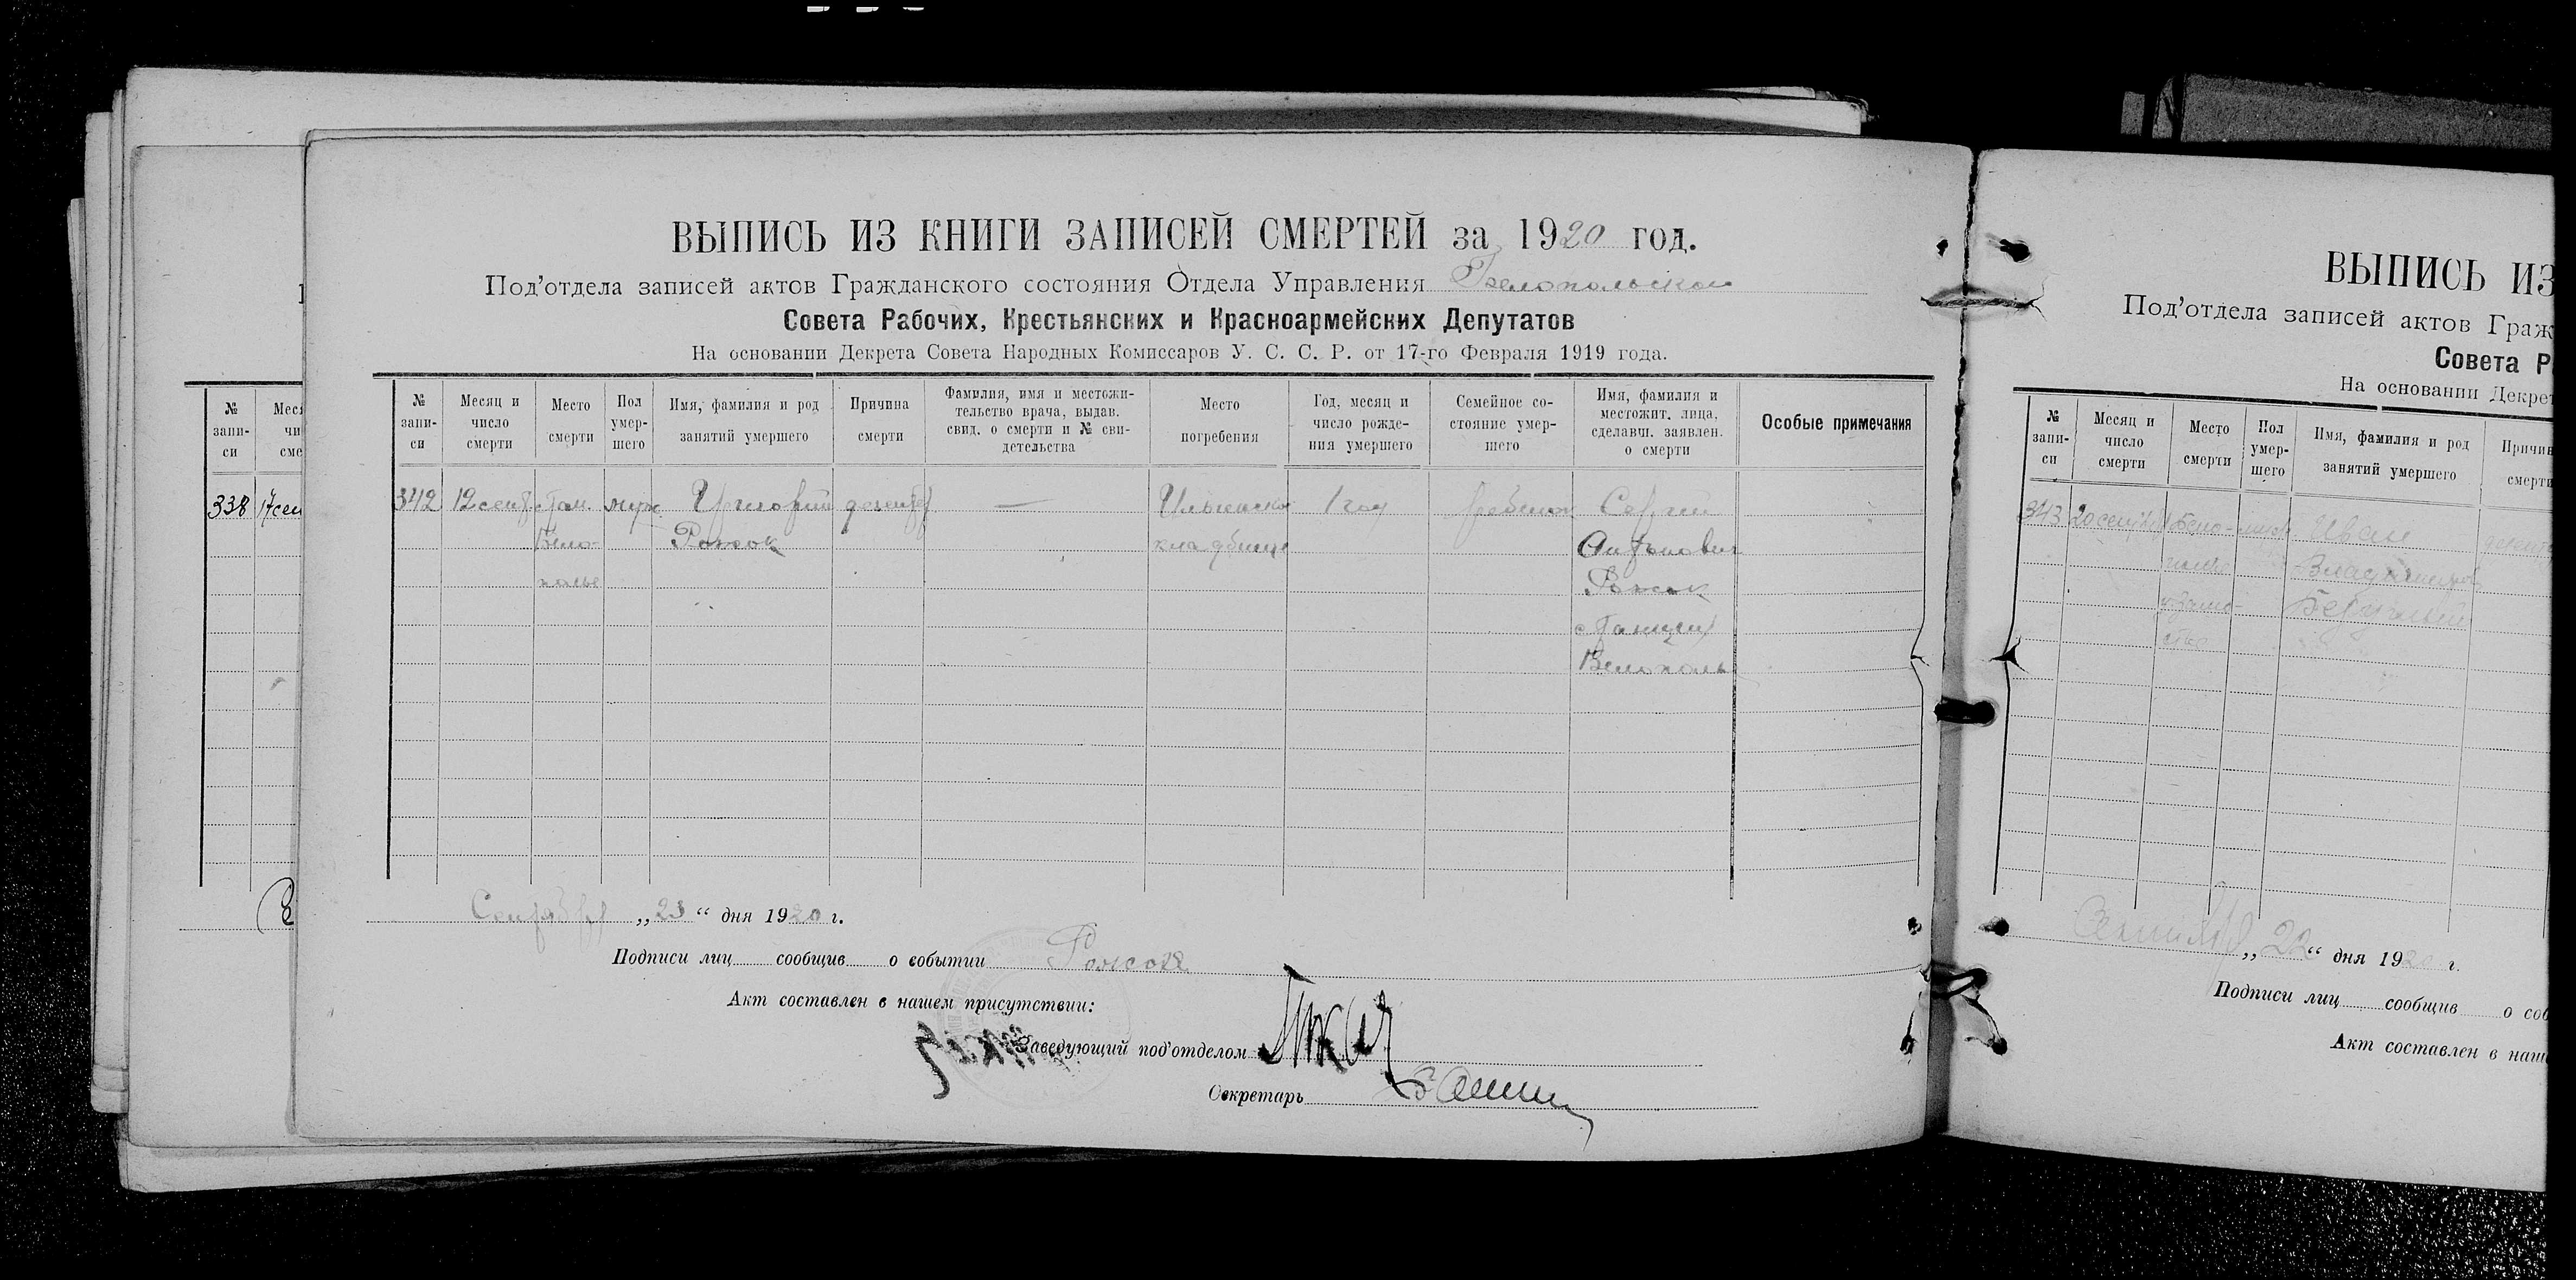 ВЫПИСЬ ИЗ КНИГИ ЗАПИСЕЙ СМЕРТЕЙ за 1920 год.
Под'отдела записей актов Гражданского состояния Отдела Управления Белопольской
Совета Рабочих, Крестьянских и Красноармейских Депутатов
На основании Декрета Совета Народных Комиссаров У. С. С. Р. от 17-го Февраля 1919 года.
№ запи-си
Месяц и число смерти
Место смерти
Пол умер-шего
Имя, фамилия и род занятий умершего
Причина смерти
Фамилия, имя и местожи-тельство врача, выдав. свид. о смерти и № сви-детельства
Место погребения
Год, месяц и число рожде-ния умершего
Семейное со-стояние умер-шего
Имя, фамилия и местожит. лица, сделавш. заявлен. о смерти
Особые примечания
342 12 сент. муж — 1 год ребенок Сергий
Бело- Рожок кладбище Антонович
полье Рожок
станция
Белополье
Сентября „23“ дня 1920 г.
Подписи лиц сообщив о событии Рожок
Акт составлен в нашем присутствии:
Заведующий под'отделом
Секретарь
№ запи-си
Меся
чи
сме
338 17 сен
ВЫПИСЬ ИЗ
Под'отдела записей актов Граж
Совета Р
На основании Декрет
№ запи-си
Месяц и число смерти
Место смерти
Пол умер-шего
Имя, фамилия и род занятий умершего
Причин
смерти
343 20 Бело- Иван
полье Владимиров
„ 22 “ дня 1920 г.
Подписи лиц сообщив о соб
Акт составлен в наш